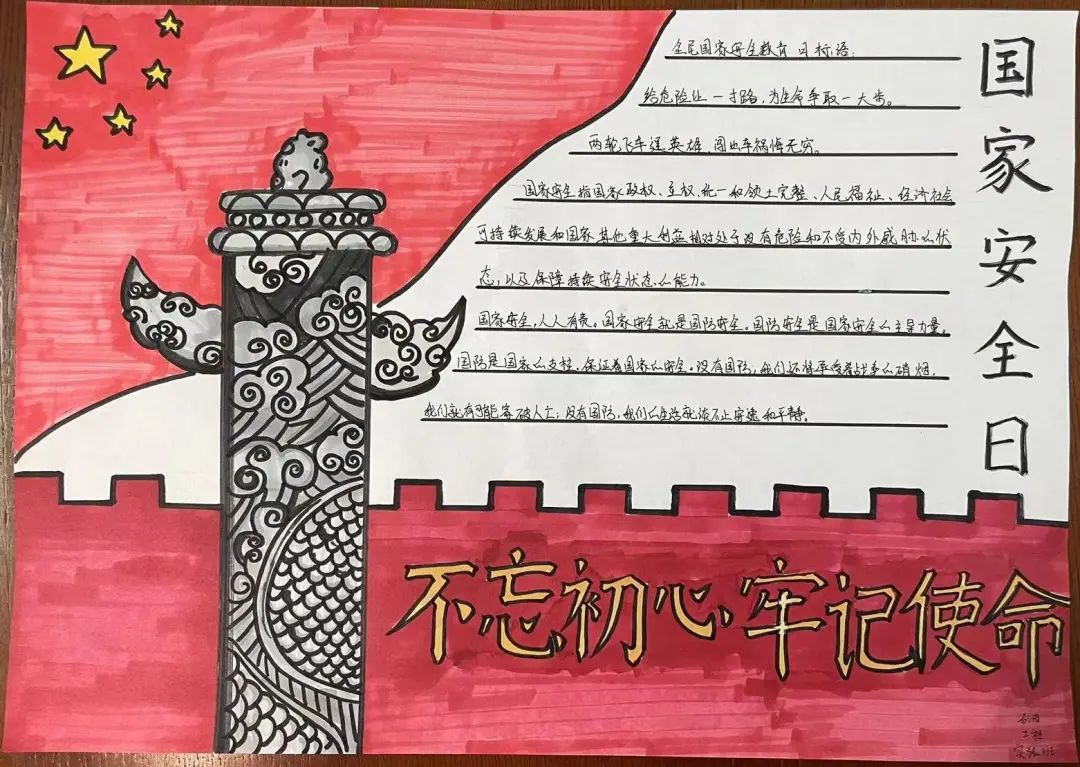 国家安全日
全民国家安全教育日标语:
给危险让一寸路,为生命争取一大步。
两轮飞车逞英雄,闯出车祸悔无穷。
国家安全指国家政权、主权、统一和领土完整、人民福祉、经济社会
可持续发展和国家其他重大利益相对处于没有危险和不受内外威胁的状
态,以及保障持续安全状态的能力。
国家安全,人人有责。国家安全就是国防安全。国防安全是国家安全的主导力量。
国防是国家的支柱,保证着国家的安全。没有国防,我们还将承受着战争的硝烟,
我们就有可能家破人亡;没有国防,我们的生活就谈不上安逸和平静。
不忘初心牢记使命
石油
工程
实验班